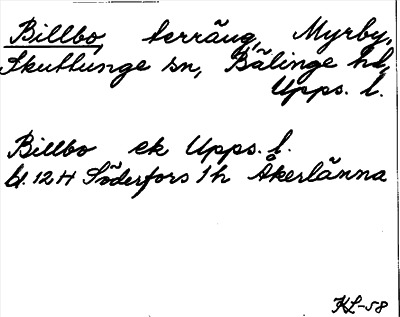 Billbo, terräng, Myrby,
Skuttunge sn, Bälinge hd,
Upps. l.
Billbo ek Upps. l.
bl. 12 H Söderfors 1 h Åkerlänna
KL-58